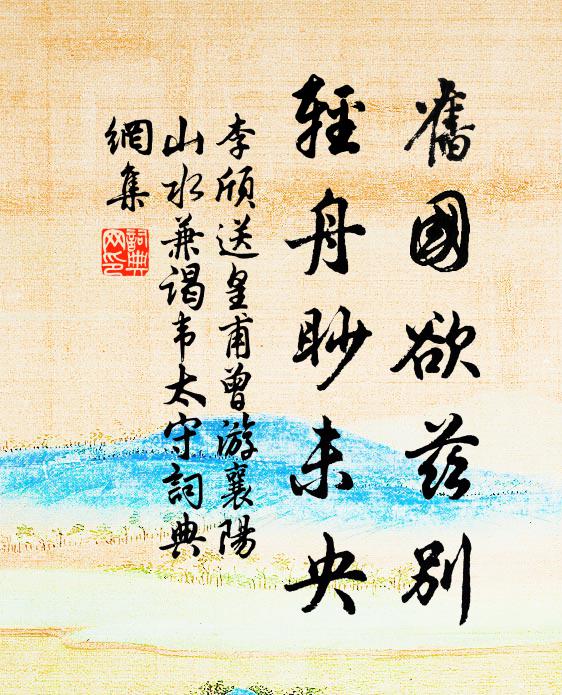 舊國欲茲別
輕舟眇未央
李頎送皇甫曾游襄陽
山水兼謁韦太守詞典
網集
詞典
网印